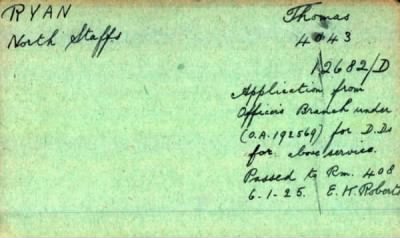 RYAN Thomas
North Staffs 4043
12682/D
Application from
Officers Branch under
(O.A. 192569) for D.Ds
for above service.
Passed to Rm. 408
6-1-25. E.K. Roberts